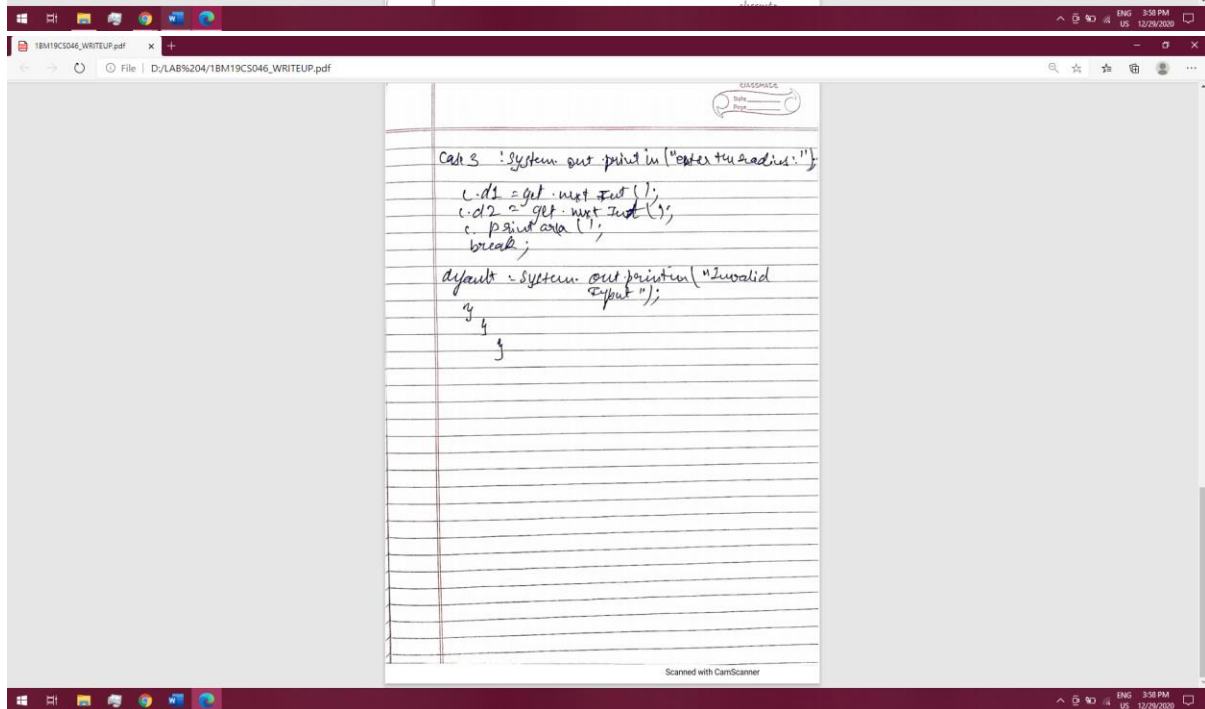 classmate
ENG 3:58 PM
US 12/29/2020
1BM19CS046_WRITEUP.pdf
File | D:/LAB%204/1BM19CS046_WRITEUP.pdf
classmate
Date
Page
Case 3 : System. out. print in ("enter the radius:");
c.d1 = get. next Int ();
c.d2 = get. next Int ();
c. print area ();
break;
default : System. out. println ("Invalid
Input");
}
}
}
Scanned with CamScanner
ENG 3:58 PM
US 12/29/2020